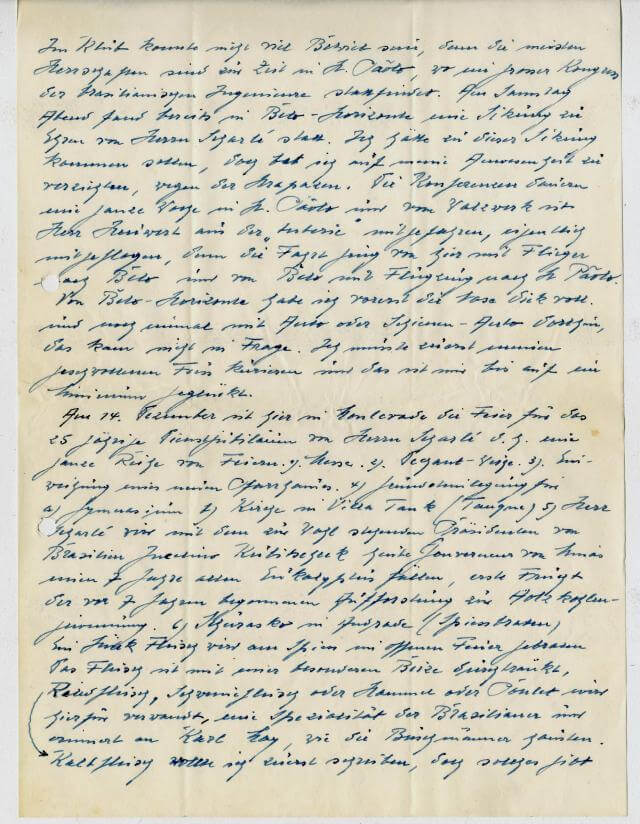 Im Klub konnte nicht viel Betrieb sein, denn die meisten
Herrschaften sind zur Zeit in St. Páolo, wo ein grosser Kongress
der brasilianischen Ingenieure stattfindet. Am Samstag
Abend fand bereits in Belo-Horizonte eine Sitzung zu
Ehren von Herrn Scharlé statt. Ich hätte zu dieser Sitzung
kommen sollen, doch bat ich auf meine Anwesenheit zu
verzichten, wegen der Strapazen. Die Konferenzen dauern
eine ganze Woche in St. Páolo und vom Valzwerk ist
Herr aus der mitgefahren, eigentlich
mitgeflogen, denn die Fahrt ging von hier mit Flieger
nach Belo und von Belo mit Flugzeug nach St Páolo.
Von Belo-Horizonte habe ich vorerst die Nase dick voll.
und noch einmal mit Auto oder Schienen-Auto dorthin,
das kam nicht in Frage. Ich musste zuerst meinen
geschwollenen Fuss kurieren und das ist mir bis auf ein
Minimum geglückt.
Am 14. Dezember ist hier in Monlevade die Feier für das
25 jährige Dienstjubiläum von Herrn Scharlé d.h. eine
ganze Reihe von Feiern. 1) Messe. 2). 3). Ein-
weihung eines neuen Pfarrhauses. 4) Grundsteinlegung für
a) Gymnasium b) Kirche in Villa Tank (Tanque) 5) Herr
Scharlé wird mit dem zur Wahl stehenden Präsidenten von
Brasilien Juscelino Kubitscheck heute Gouverneur von Minas
einen 7 Jahre alten Eukalyptus fällen, erste Frucht
der vor 7 Jahren begonnenen Aufforstung zur Holzkohlen-
gewinnung. 6) Schurasko in Andrade (Spiessbraten)
Ein Stück Fleisch wird am Spiess im offenen Feuer gebraten
Das Fleisch ist mit einer besonderen Beize durchtränkt,
Rindfleisch, Schweinefleisch oder Hammel oder Poulet wird
hierfür verwandt, eine Spezialität der Brasilianer und
erinnert an Karl May, wie die Buschmänner hausten.
Kalbfleisch wollte ich zuerst schreiben, doch solches gibt